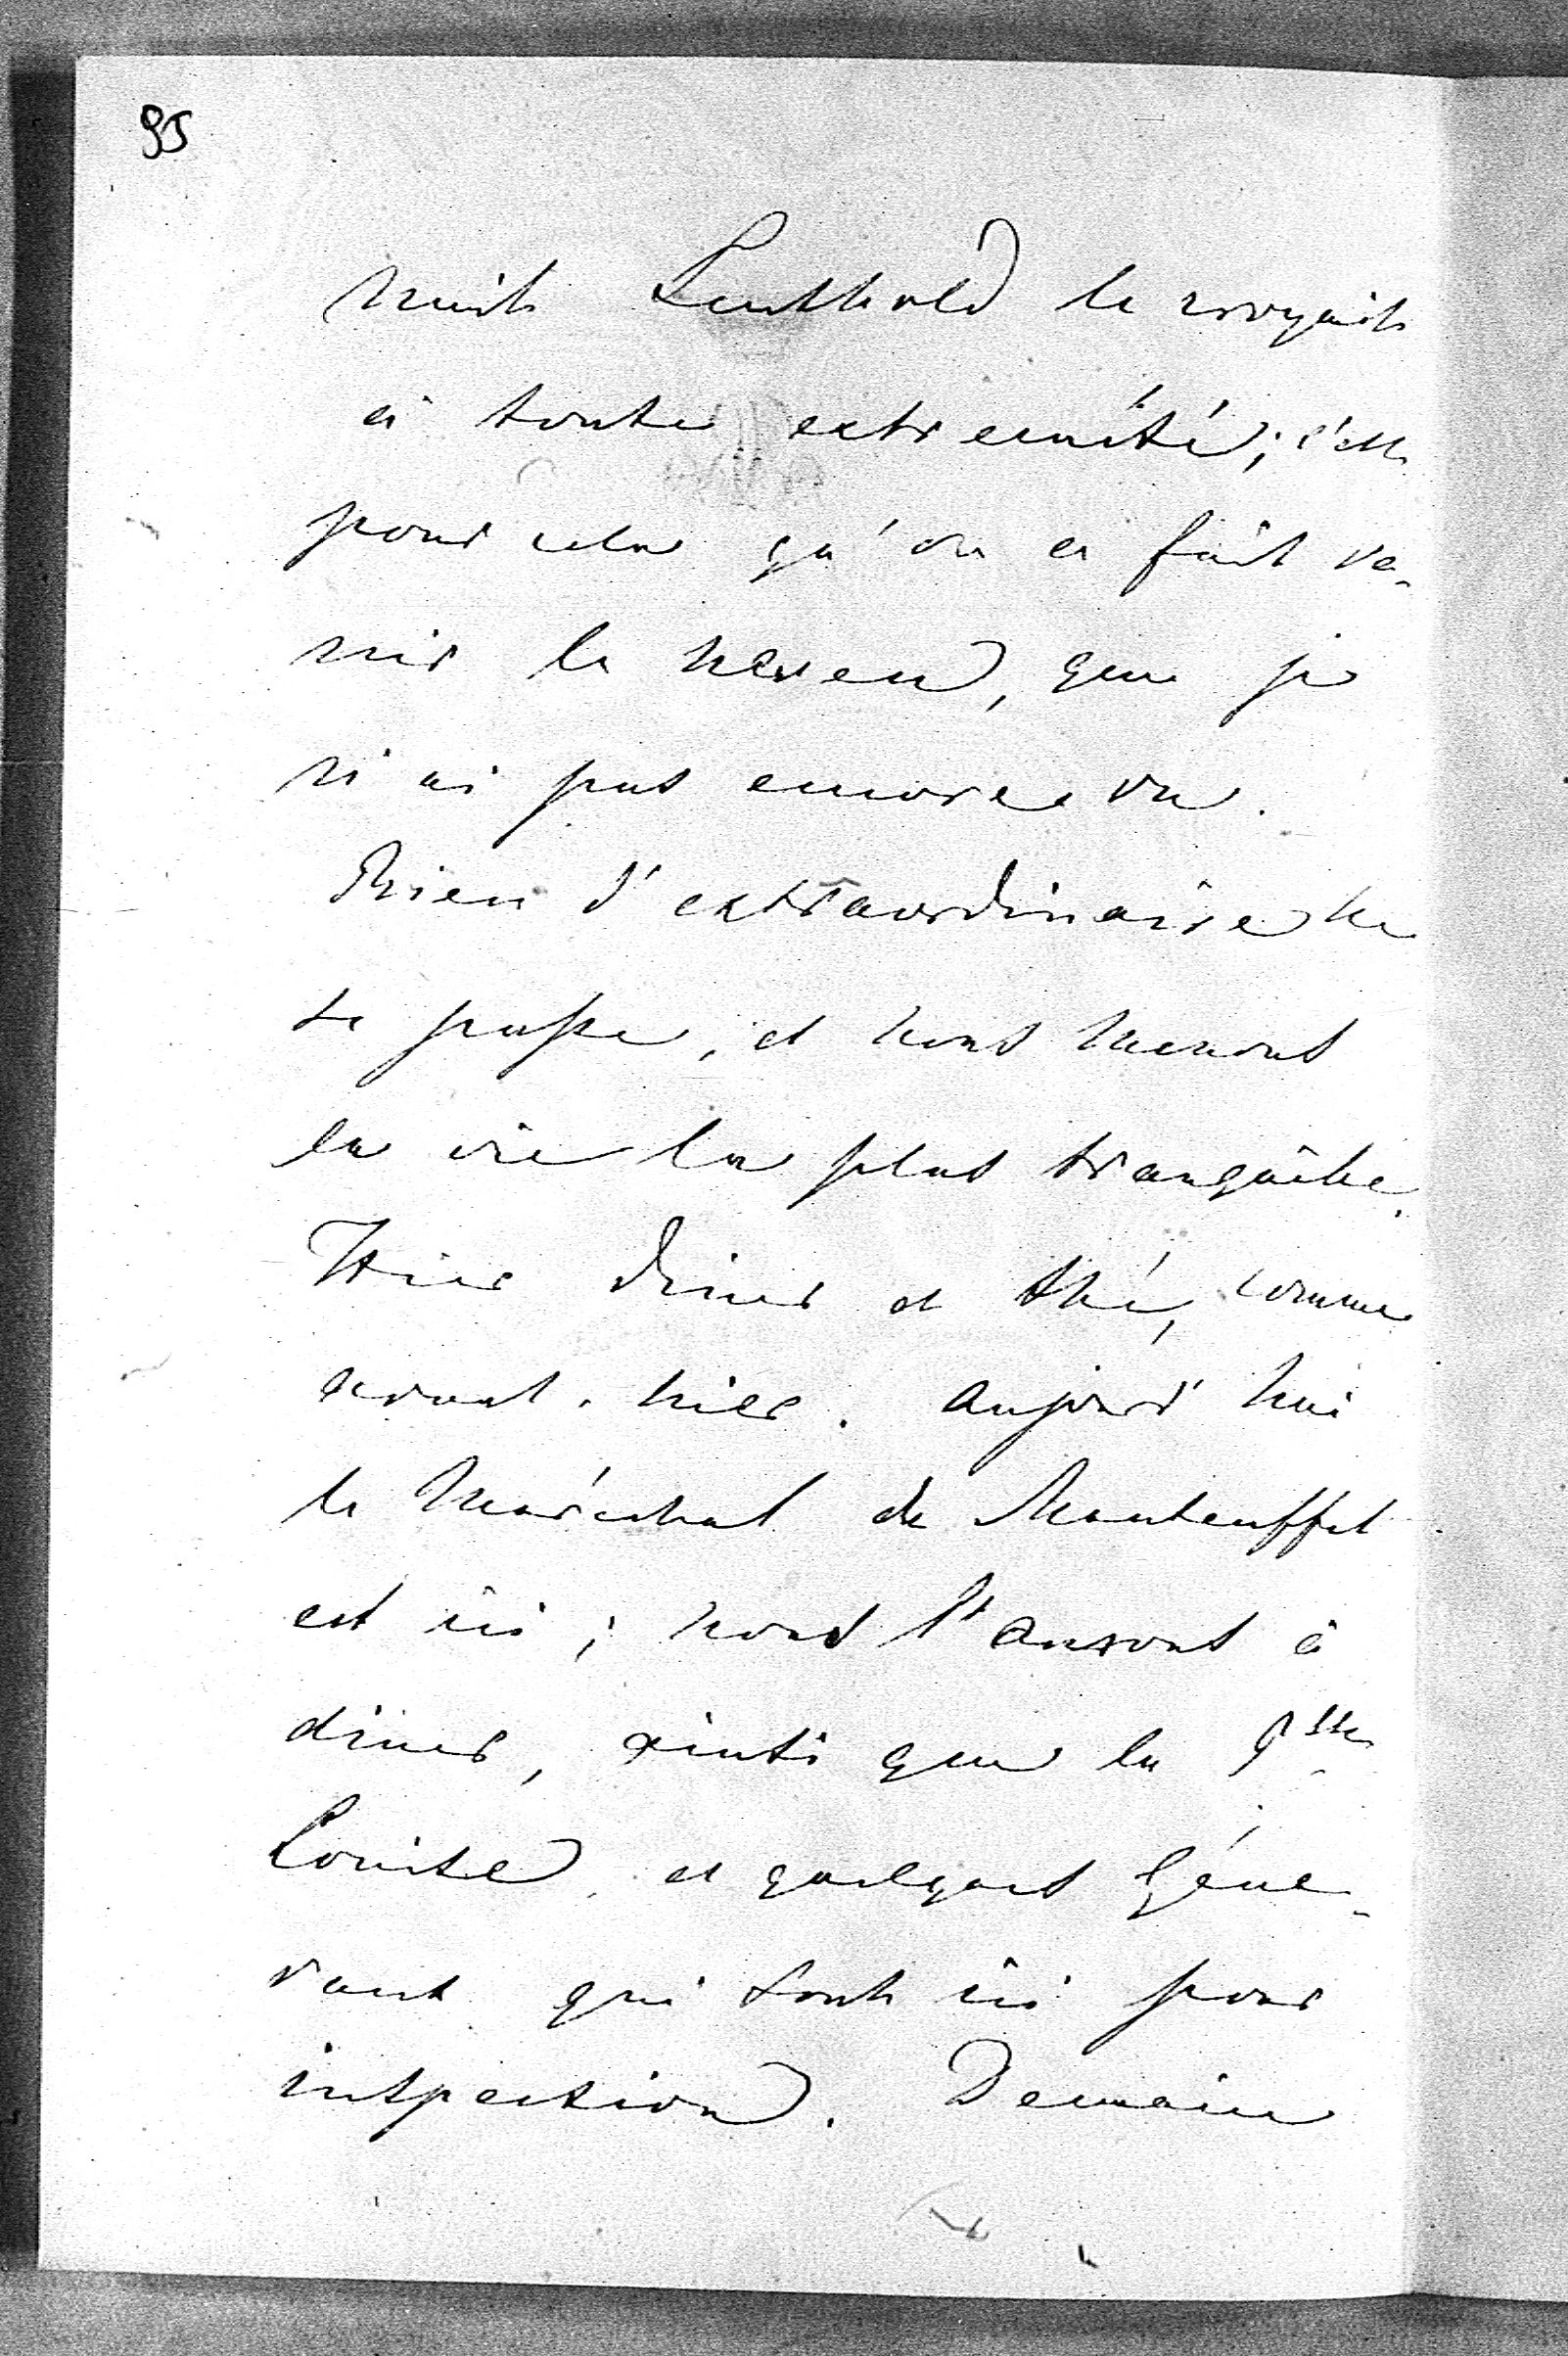 95
nuit Leuthold le croyait
à toute extrémité; c'est
pour cela qu'on a fait ve-
nir le neveu, que je
n'ai pas encore vu.
Rien d'extraordinaire ne
se passe, et nous menons
la vie la plus tranquille.
Hier diner et thé, comme
avant-hier. Aujourd'hui
le Maréchal de Manteuffel
est ici; nous l'aurons à
diner, ainsi que la Psse
Louise, et quelques Géné-
raux qui sont ici pour
inspection. Demain